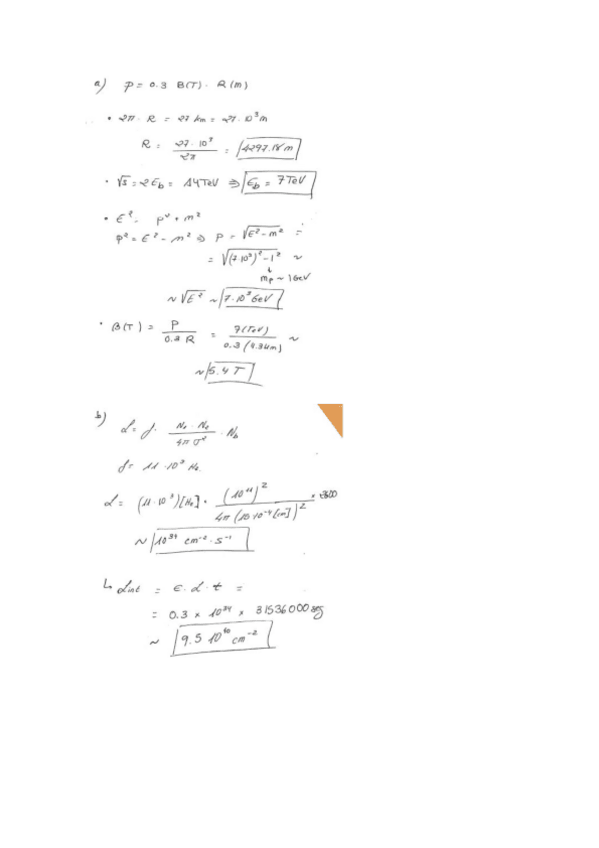 a) p = 0.3 B(T) · R(m)
• 2π · R = 27 km = 27 · 10³ m
R = 27 · 10³ / 2π = 4297.18 m
· √s = 2 E_b = 14 TeV ⇒ E_b = 7 TeV
• E² = p² + m²
p² = E² - m² ⇒ p = √E² - m² =
= √(7·10³)² - 1² ~
↓
m_p ~ 1 GeV
~ √E² ~ 7·10³ GeV
· B(T) = P / 0.3 R = 7(TeV) / 0.3 (4.3km) ~
~ 5.4 T
b)
L = f · N₁ · N₂ / 4π σ² · N_b
f = 11 · 10³ Hz
L = (11·10³)[Hz] · (10¹¹)² / 4π (10·10⁻⁴ [cm])² ×
~ 10³⁴ cm⁻² · s⁻¹
↳ Lint = ε · L · t =
= 0.3 × 10³⁴ × 31536000 seg
~ 9.5 10⁴⁰ cm⁻²